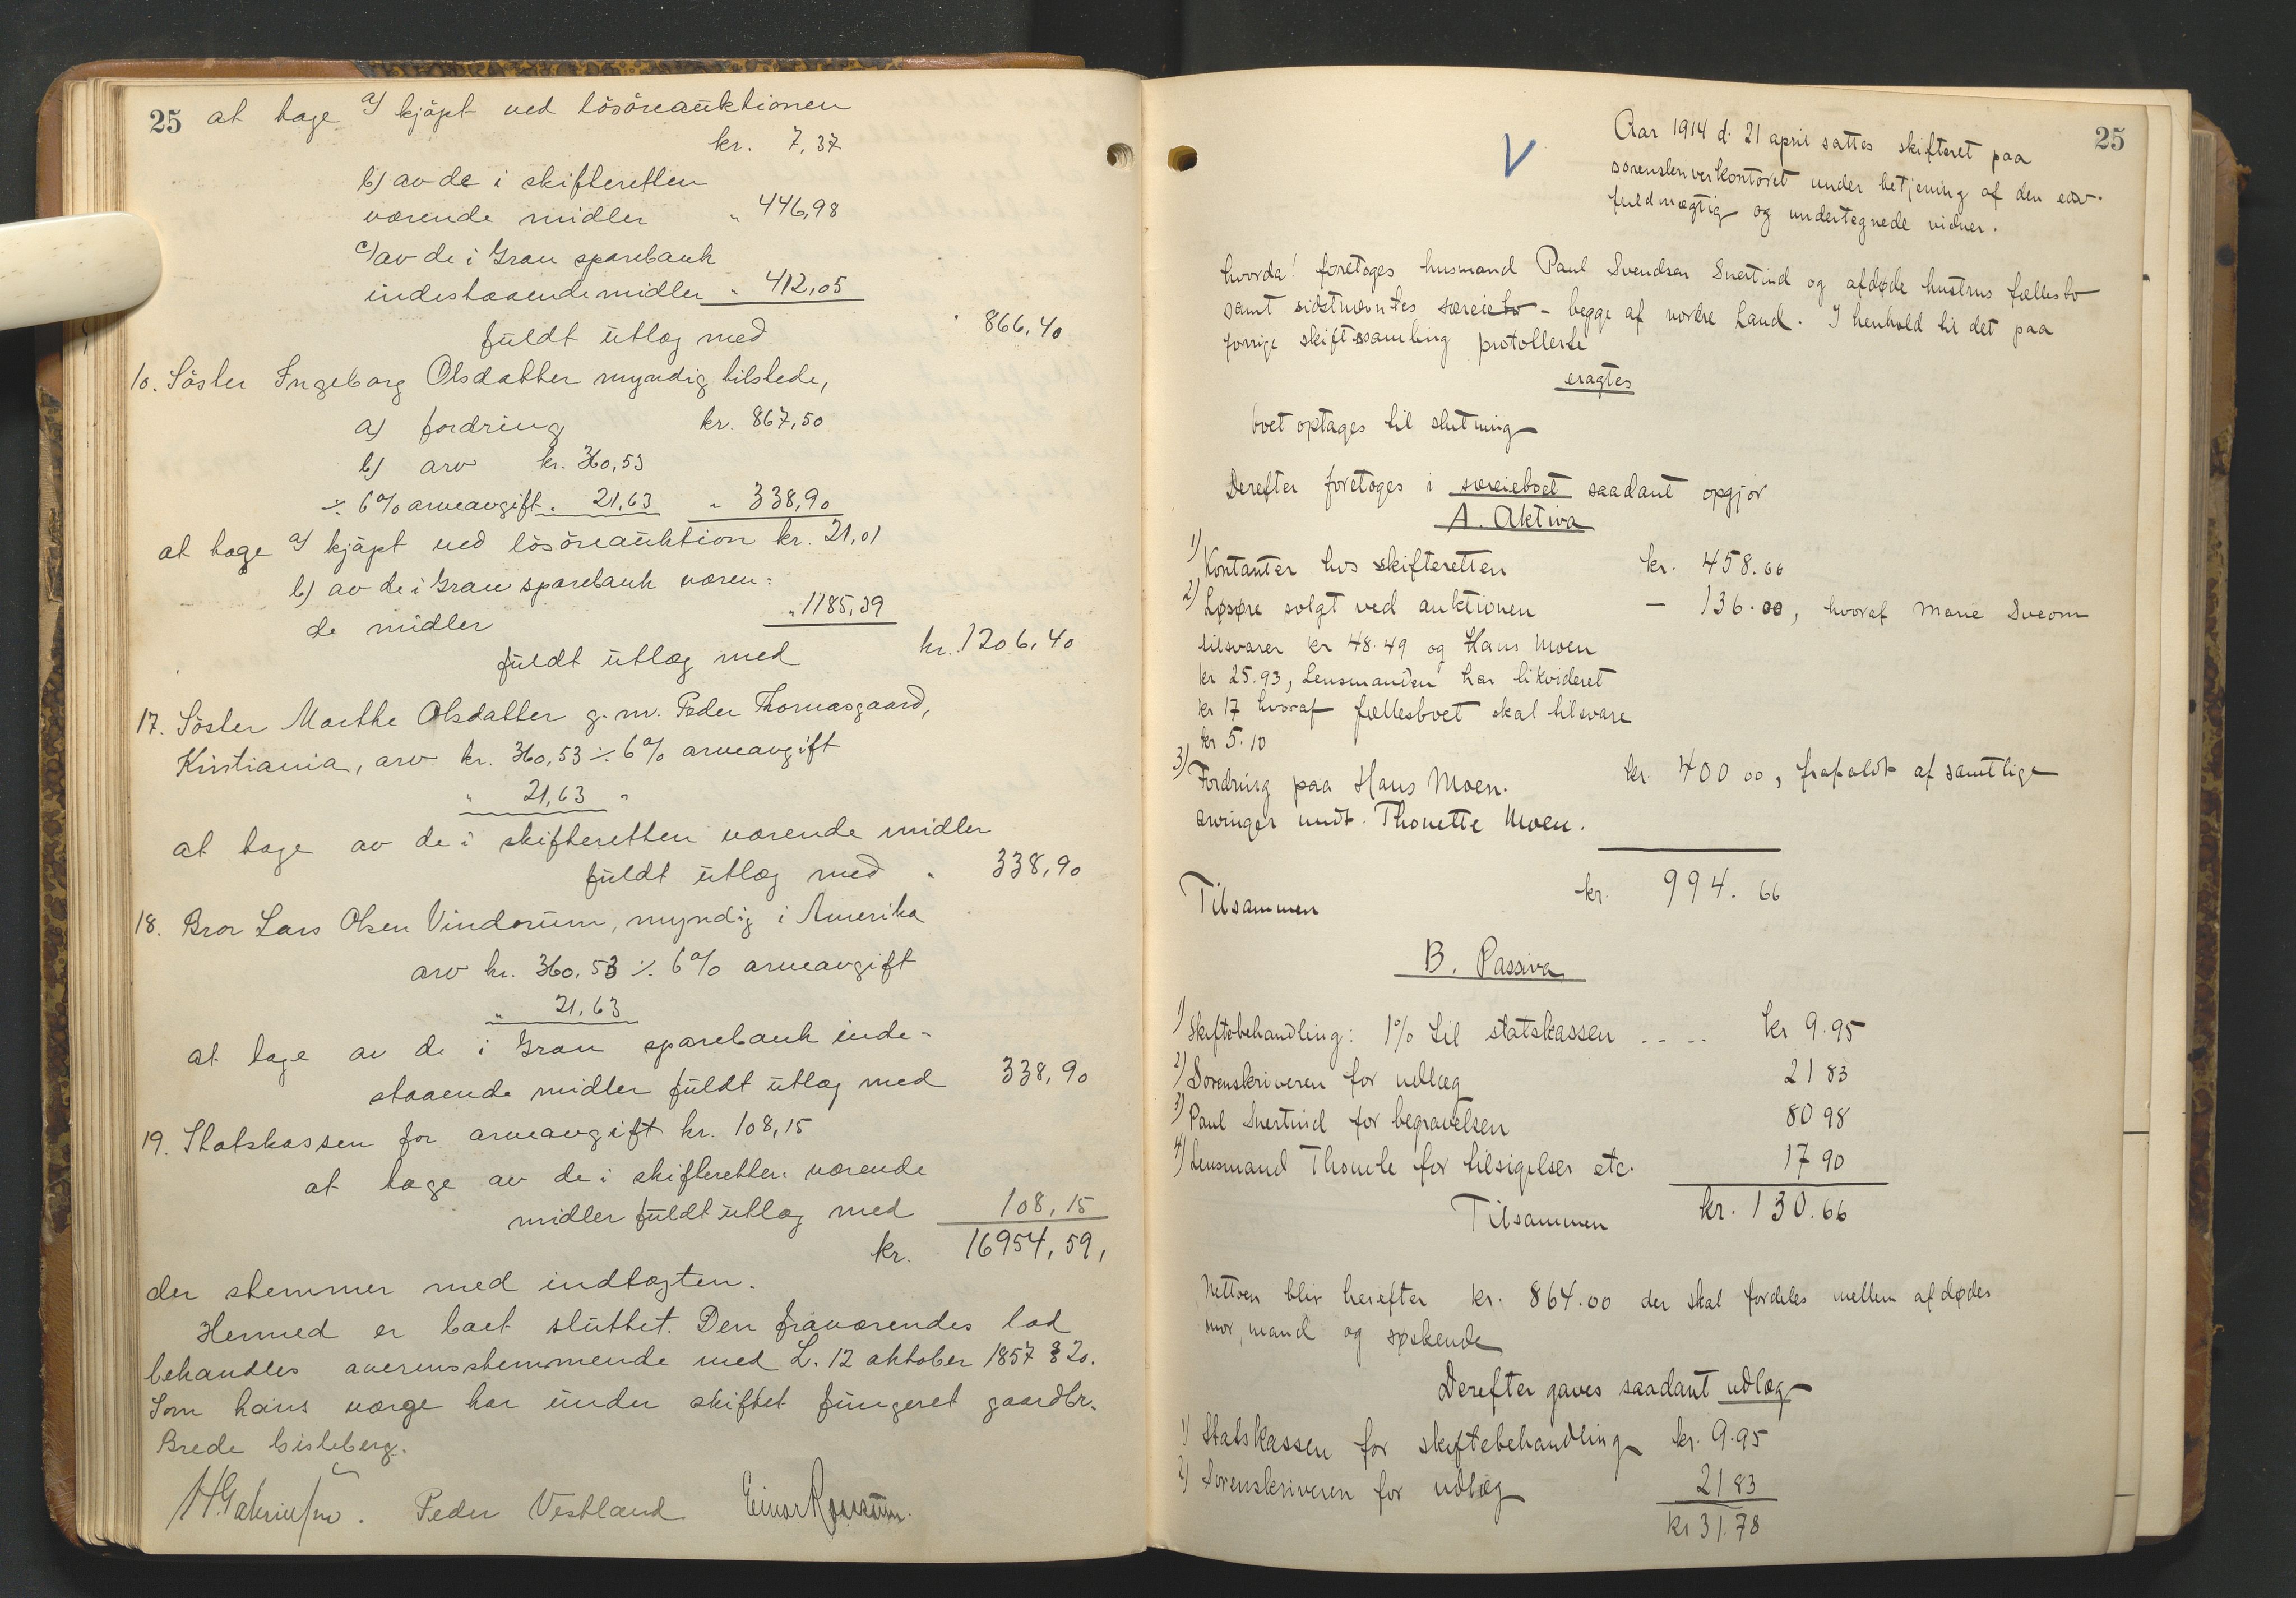 25 at tage a) kjøpt ved løsøreauktionen
kr. 7,37
b) av de i skifteretten
værende midler " 446,98
c) av de i Gran sparebank
indestaaende midler " 412,05
fuldt utlæg med " 866,40
10. Søster Ingeborg Olsdatter myndig tilstede,
a) fordring kr. 867,50
b) arv kr. 360,53
÷ 6% arveavgift " 21,63 " 338,90
at tage a) kjøpt ved løsøreauktion kr. 21,01
b) av de i Gran sparebank væren=
de midler " 1185,39
fuldt utlæg med kr. 1206,40
17. Søster Marthe Olsdatter g. m. Peder Thomasgaard,
Kristiania, arv kr. 360,53 ÷ 6% arveavgift
" 21,63 "
at tage av de i skifteretten værende midler
fuldt utlæg med " 338,90
18. Bror Lars Olsen Vindorum, myndig i Amerika
arv kr. 360,53 ÷ 6% arveavgift
" 21,63
at tage av de i Gran sparebank inde-
staaende midler fuldt utlæg med 338,90
19. Statskassen for arveavgift kr. 108,15
at tage av de i skifteretten værende
midler fuldt utlæg med 108,15
kr. 16954,59,
der stemmer med indtægten.
Hermed er boet sluttet. Den fraværendes lod
behandles overensstemmende med L. 12 oktober 1857 § 20.
Som hans værge har under skiftet fungeret gaardbr.
Brede Eisleberg.
Peder Vestland Einar
25
V
Aar 1914 d. 21 april sattes skifteret paa
sorenskriverkontoret under betjening af den edsv.
fuldmægtig og undertegnede vidner.
hvorda! foretoges husmand Paul Svendsen Snertind og afdøde hustrus fællesbo
samt sidstnævntes særeiebo - begge af nordre Land. I henhold til det paa
forrige skiftssamling protollerte
eragtes
boet optages til slutning
Derefter foretoges i særeieboet saadant opgjør
A. Aktiva
1) Kontanter hos skifteretten kr. 458.66
2) Løsøre solgt ved auktionen — 136.00, hvoraf Marie Sveom
tilsvarer kr 48.49 og Hans Moen
kr 25.93, Lensmanden har likvideret
kr 17 hvoraf fællesboet skal tilsvare
kr 5.10
3) Fordring paa Hans Moen. kr. 400 00, frafaldt af samtlige
arvinger undt. Thonette Moen.
Tilsammen kr. 994. 66
B. Passiva
1) Skiftebehandling: 1% til statskassen .... kr 9.95
2) Sorenskriveren for udlæg 21 83
3) Paul Snertind for begravelsen 80 98
4) Lensmand Thomle for tilsigelser etc. 17 90
Tilsammen kr. 130.66
Nettoen blir herefter kr. 864.00 der skal fordeles mellem afdødes
mor, mand og søskende
Derefter gaves saadant udlæg
1) Statskassen for skiftebehandling kr. 9.95
2) Sorenskriveren for udlæg 21 83
kr 31.78